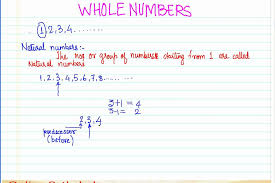 WHOLE NUMBERS
① 2, 3, 4.........
Natural numbers:-
The no's or group of numbers starting from 1 are called
Natural numbers
1, 2, 3, 4, 5, 6, 7, 8.........
3+1 = 4
3-1 = 2
2, 3, 4
predecessor
(before)